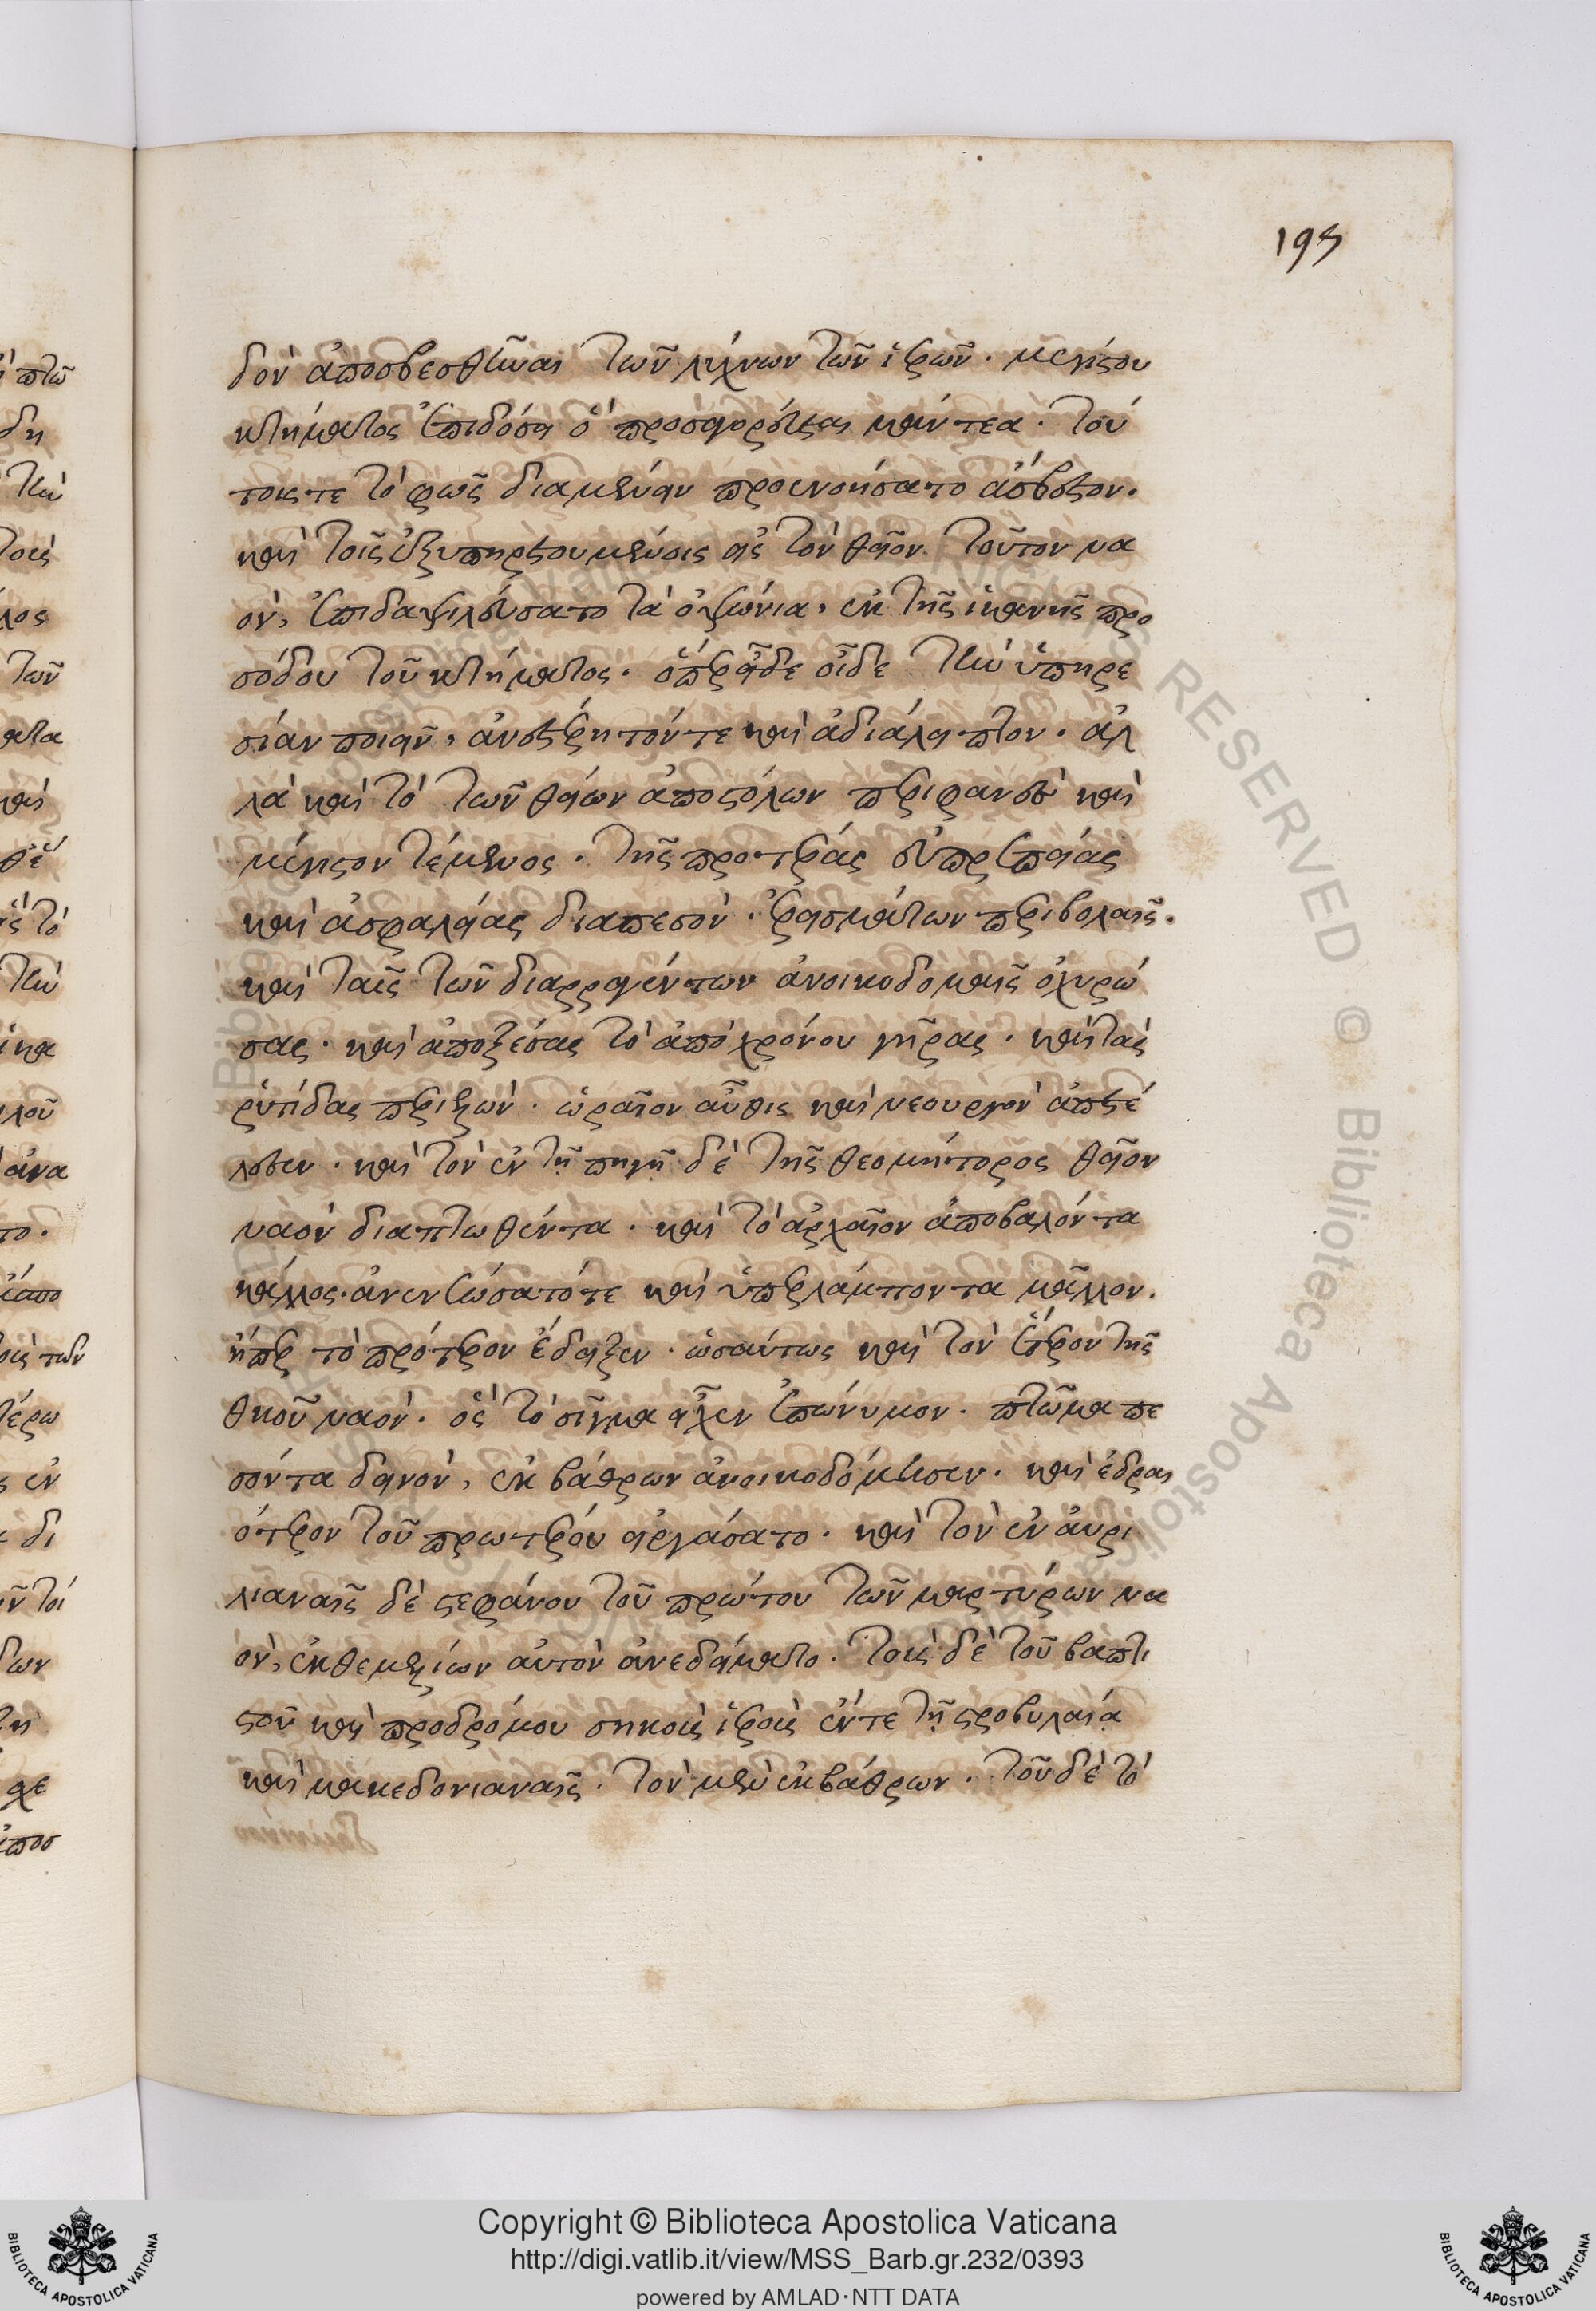 195
δὸν ἀποσβεσθῆναι τῶν λύχνων τῶν ἱερῶν. μεγίστου
κτήματος ἐπιδόσει ὃ προσαγορεύεται μάντεα. τού
τοις τε τὸ φῶς διαμένειν προενοήσατο ἄσβεστον.
καὶ τοῖς ἐξυπηρετουμένοις εἰς τὸν θεῖον τοῦτον να
όν, ἐπιδαψιλεύσατο τὰ ὀψώνια, ἐκ τῆς ἱκανῆς προ
σόδου τοῦ κτήματος. ὅπερ εἶδε οἶδε τὴν ὑπηρε
σίαν ποιεῖν, ἀνυστέρητόν τε καὶ ἀδιάλειπτον. ἀλ
λὰ καὶ τὸ τῶν θείων ἀποστόλων περιφανὲς καὶ
μέγιστον τέμενος. τῆς προτέρας εὐπρεπείας
καὶ ἀσφαλείας διαπεσὸν. ἐρεισμάτων περιβολαῖς.
καὶ ταῖς τῶν διαρραγέντων ἀνοικοδομαῖς ὀχυρώ
σας. καὶ ἀποξέσας τὸ ἀπὸ χρόνου γῆρας. καὶ τὰς
ῥυτίδας περιελὼν. ὡραῖον αὖθις καὶ νεουργὸν ἀπετέ
λεσεν. καὶ τὸν ἐν τῇ πηγῇ δὲ τῆς θεομήτορος θεῖον
ναὸν διαπτωθέντα. καὶ τὸ ἀρχαῖον ἀποβαλόντα
κάλλος. ἀνενεώσατό τε καὶ ὑπερλάμποντα μᾶλλον.
ἤπερ τὸ πρότερον ἔδειξεν. ὡσαύτως καὶ τὸν ἕτερον τῆς
θκοῦ ναὸν. ὃς τὸ σίγμα εἶχεν ἐπώνυμον. πτῶμα πε
σόντα δεινὸν, ἐκ βάθρων ἀνοικοδόμησεν. καὶ ἑδραι
ότερον τοῦ πρωτέρου εἰργάσατο. καὶ τὸν ἐν αὐρι
λιαναῖς δὲ στεφάνου τοῦ πρώτου τῶν μαρτύρων να
ὸν, ἐκ θεμελίων αὐτὸν ἀνεδείματο. τοῖς δὲ τοῦ βαπτι
στοῦ καὶ προδρόμου σηκοῖς ἱεροῖς ἔν τε τῇ στροβυλαίᾳ
καὶ μακεδονιαναῖς. τὸν μὲν ἐκ βάθρων. τοῦ δὲ τὸ
Copyright © Biblioteca Apostolica Vaticana
http://digi.vatlib.it/view/MSS_Barb.gr.232/0393
powered by AMLAD·NTT DATA